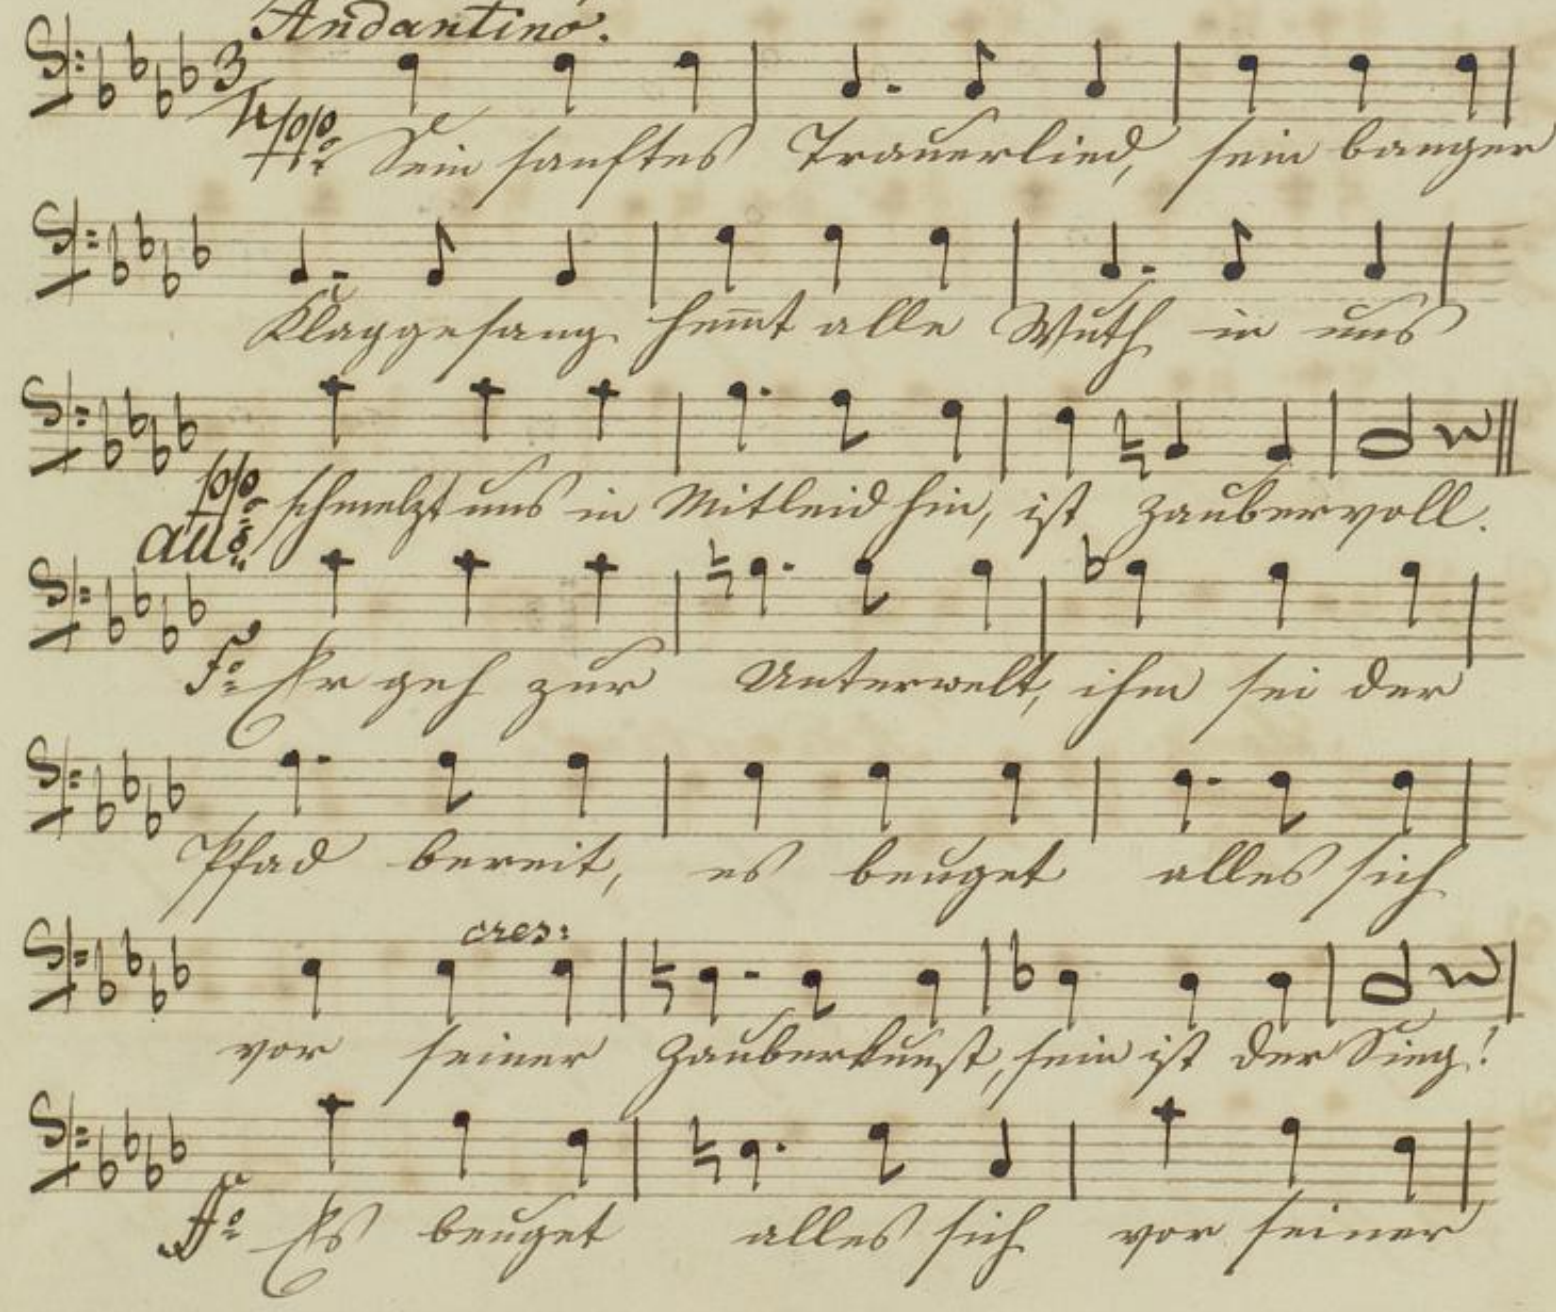 Andantino.
3/4
pp: Sein sanftes Trauerlied, sein banger
Klaggesang hem̅t alle Wuth in uns
pp: schmelzt uns in Mitleid hin, ist zaubervoll.
aus:
Fo: Er geh zur Unterwelt, ihm sei der
Pfad bereit, es beuget alles sich
cres:
vor seiner Zauberkunst, sein ist der Sieg!
Es beuget alles sich vor seiner